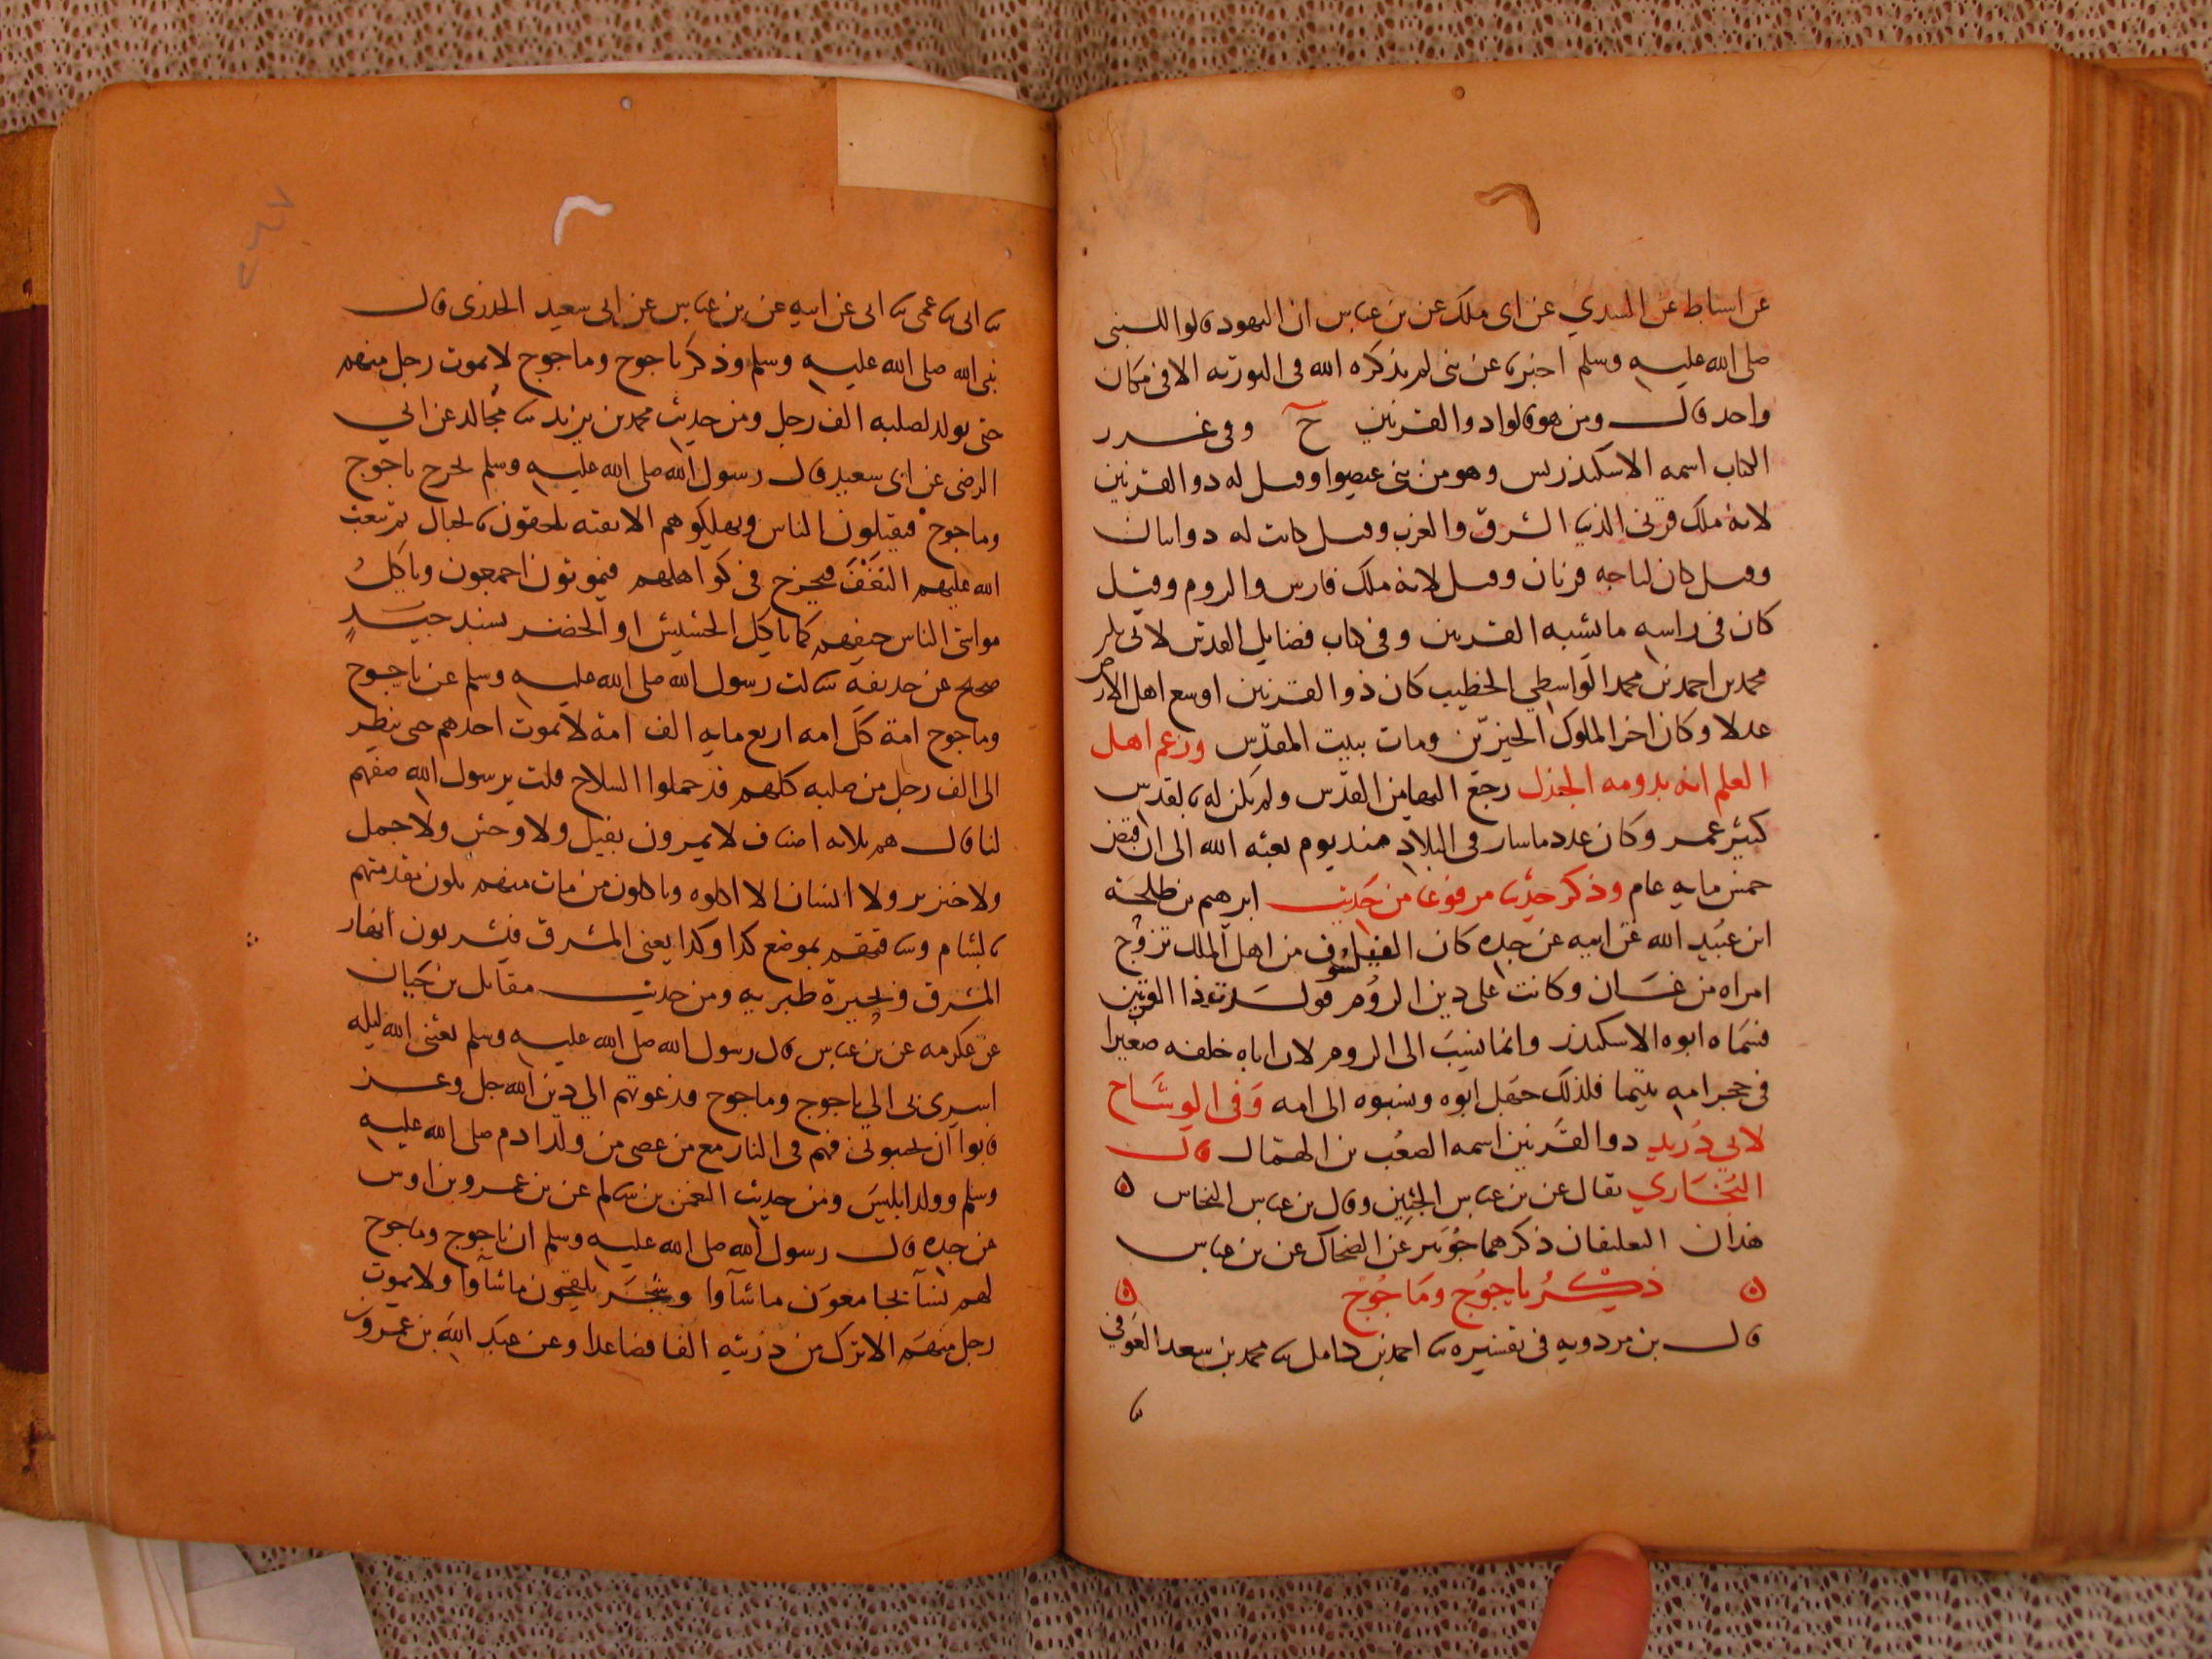 عن اسباط عن السدي عن ابى ملك عن بن عباس ان اليهود قالوا للنبى
صلى الله عليه وسلم اخبرنا عن نبى لم يذكره الله فى التورته الا فى مكان
واحد قال ومن هو قالوا ذوا القرنين ح وفى غرر
الكتاب اسمه الاسكندرس وهو من بنى عيصوا وقيل له ذوا القرنين
لانه ملك قرنى الدنيا الشرق والغرب وقيل كانت له ذوابتان
وقيل كان لتاجه قرنان وقيل لانه ملك فارس والروم وقيل
كان فى راسه ما يشبه القرنين وفى كتاب فضايل القدس لابى بكر
محمد بن احمد بن محمد الواسطي الخطيب كان ذوا القرنين اوسع اهل الارض
عدلا وكان اخر الملوك الخيرين ومات ببيت المقدس وزعم اهل
العلم انه بدومه الجندل رجع اليها من القدس ولم يكن له بالقدس
كثير عمر وكان عدد ما سار فى البلاد منذ يوم بعثه الله الى ان قبض
خمس مايه عام وذكر حديثا مرفوعا من حديث ابرهيم بن طلحة
ابن عبيد الله عن ابيه عن جده كان الفيلسوف من اهل الملك تزوج
امراه من غسان وكانت على دين الروم فولدت ذا القرنين
فسماه ابوه الاسكندر وانما نسب الى الروم لان اباه خلفه صغيرا
فى حجر امه يتيما فلذلك جهل ابوه ونسبوه الى امه وفى الوشاح
لابي دريد ذوا القرنين اسمه الصعب بن الهمال قال
البخاري يقال عن بن عباس الجبلين وقال بن عباس النحاس ۞
هذان التعليقان ذكرهما جويبر عن الضحاك عن بن عباس
۞ ذكر ياجوج وماجوج ۞
قال بن مردويه فى تفسيره ثنا احمد بن كامل ثنا محمد بن سعد العوفي
ثنا
ثنا ابى ثنا عمى ثنا ابى عن ابيه عن بن عباس عن ابى سعيد الخدرى قال
نبى الله صلى الله عليه وسلم وذكر ياجوج وماجوج لا يموت رجل منهم
حتى يولد لصلبه الف رجل ومن حديث محمد بن يزيد ثنا مجالد عن ابي
الرضى عن ابى سعيد قال رسول الله صلى الله عليه وسلم يخرج ياجوج
وماجوج فيقتلون الناس ويهلكوهم الا بقيه يلحقون بالجبال ثم يبعث
الله عليهم النغف فيخرج فى كواهلهم فيموتون اجمعون وياكل
مواشى الناس جيفهم كما ياكل الحشيش او الخضر بسند جيد
صحيح عن حذيفه سالت رسول الله صلى الله عليه وسلم عن ياجوج
وماجوج امة كل امه اربع مايه الف امة لا يموت احدهم حتى ينظر
الى الف رجل من صلبه كلهم قد حملوا السلاح قلت يرسول الله صفهم
لنا قال هم ثلاثه اصناف لا يمرون بفيل ولا وحش ولا جمل
ولا خنزير ولا انسان الا اكلوه وياكلون من مات منهم يكون مقدمتهم
بالشام وساقتهم بموضع كذا وكذا يعنى المشرق فيشربون انهار
المشرق وبحيرة طبريه ومن حديث مقاتل بن حيان
عن عكرمه عن بن عباس قال رسول الله صلى الله عليه وسلم بعثنى الله ليله
اسري بى الي ياجوج وماجوج فدعوتهم الي دين الله جل وعز
فابوا ان يجيبونى فهم فى النار مع من عصى من ولد ادم صلى الله عليه
وسلم وولد ابليس ومن حديث النعمن بن سالم عن بن عمرو بن اوس
عن جده قال رسول الله صلى الله عليه وسلم ان ياجوج وماجوج
لهم نسآ يجامعون ماشآوا وشجر يلقحون ماشآوا ولا يموت
رجل منهم الا ترك من ذريته الفا فصاعدا وعن عبد الله بن عمرو